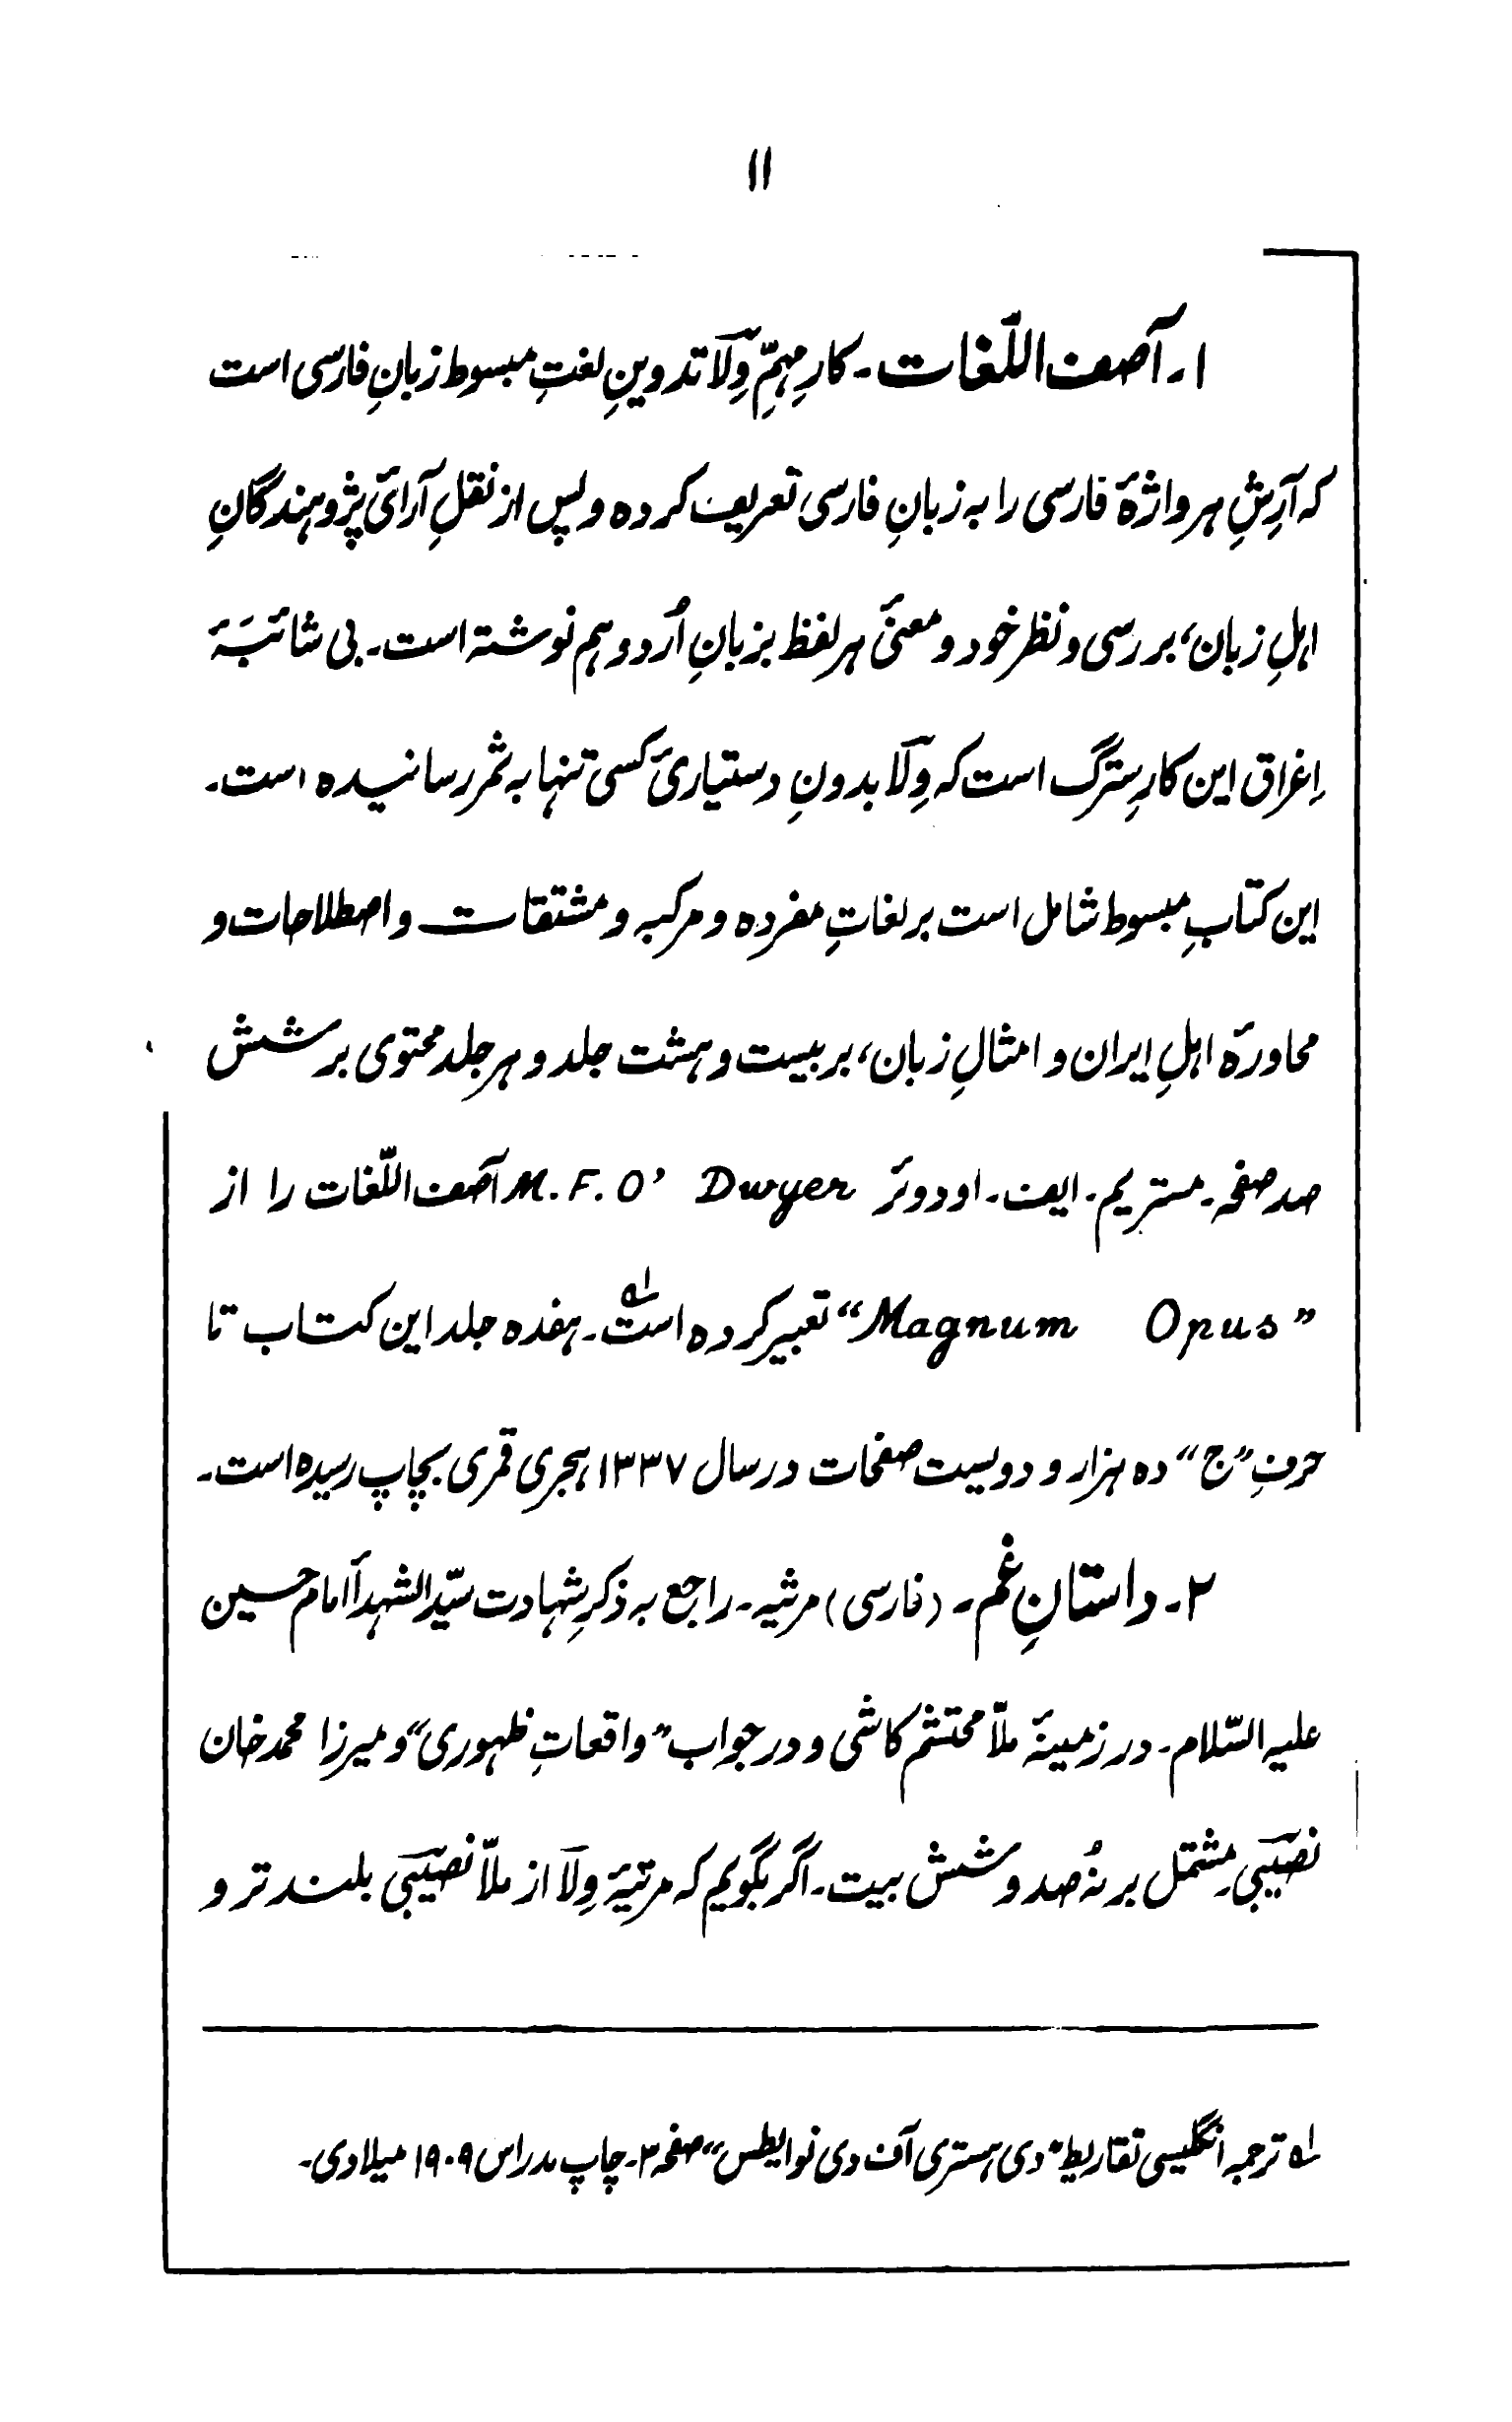 ۱۱
۱۔ آصف اللّغات۔ کارِ مہمِّ وِلَا تدوینِ لغتِ مبسوط زبانِ فارسی است
کہ آرِشِ ہر واژۂ فارسی را بہ زبانِ فارسی تعریف کردہ و پس از نقلِ آرائ پژوہندگانِ
اہلِ زبان، بررسی و نظر خود و معنیٔ ہر لفظ بزبانِ اُردو ہم نوشتہ است۔ بی شائبَۂ
اِغراق این کارِ سترگ است کہ وِلَا بدونِ دستیاریٔ کسی تنہا بہ ثمر رسانیدہ است۔
این کتابِ مبسوط شامل است بر لغاتِ مفردہ و مرکبہ و مشتقات و اصطلاحات و
محاورۂ اہلِ ایران و امثالِ زبان، بر بیست و ہشت جلد و ہر جلد محتوی بر شش
صد صفحہ۔ مستر یم۔ ایف۔ اودوئر M. F. O' Dwyer آصف اللّغات را از
”Magnum Opus“ تعبیر کردہ است؂۱۔ ہفدہ جلد این کتاب تا
حرفِ ”ج“ دہ ہزار و دویست صفحات در سال ۱۳۳۷ ہجری قمری بچاپ رسیدہ است۔
۲۔ داستانِ غم۔ (فارسی) مرثیہ۔ راجع بہ ذکرِ شہادت سیّد الشہدأ امام حسین
علیہ السّلام۔ در زمینۂ ملاّ محتشم کاشی و در جواب ”واقعاتِ ظہوری“ و میرزا محمد خان
نصیبی۔ مشتمل بر نُہ صد و شش بیت۔ اگر بگویم کہ مرتبۂ وِلَا از ملاّ نصیبی بلند تر و
؂۱ ترجمہ انگلیسی تقاریظ ”دی ہستری آف دی نوایطس“ صفحہ ۳۔ چاپ مدراس ۱۹۰۹ میلادی۔